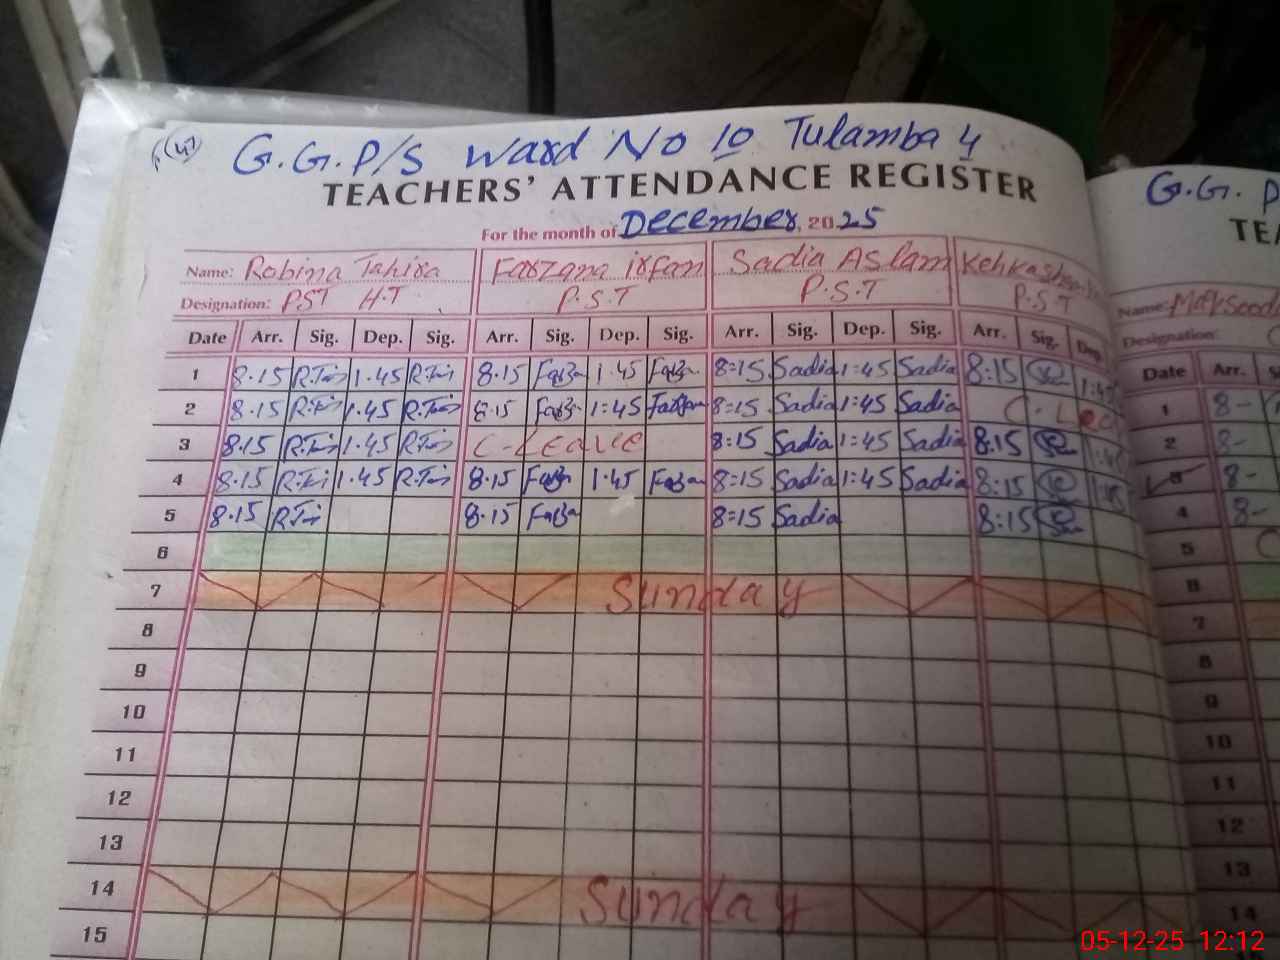 (4)
G.G.P/S Ward No 10 Tulamba 4
TEACHERS' ATTENDANCE REGISTER
For the month of December, 2025
Name: Robina Tahira Farzana irfan Sadia Aslam
Designation: PST H.T P.S.T P.S.T P.S.T
Date Arr. Sig. Dep. Sig. Arr. Sig. Dep. Sig. Arr. Sig. Dep. Sig. Arr. Sig. Dep.
1 8.15 1.45 8.15 1.45 8=15 Sadia 1:45 Sadia 8:15
2 8.15 1.45 8.15 1:45 8=15 Sadia 1:45 Sadia
3 8.15 1.45 C-Leave 8:15 Sadia 1:45 Sadia 8:15
4 8.15 1.45 8.15 1.45 8=15 Sadia 1:45 Sadia 8:15
5 8.15 8.15 8=15 Sadia 8:15
6
7 Sunday
8
9
10
11
12
13
14 Sunday
15
G.G.
Name:
Designation:
Date Arr.
1 8-
2 8-
3 8-
4 8-
5
6
7
8
9
10
11
12
13
14
05-12-25 12:12